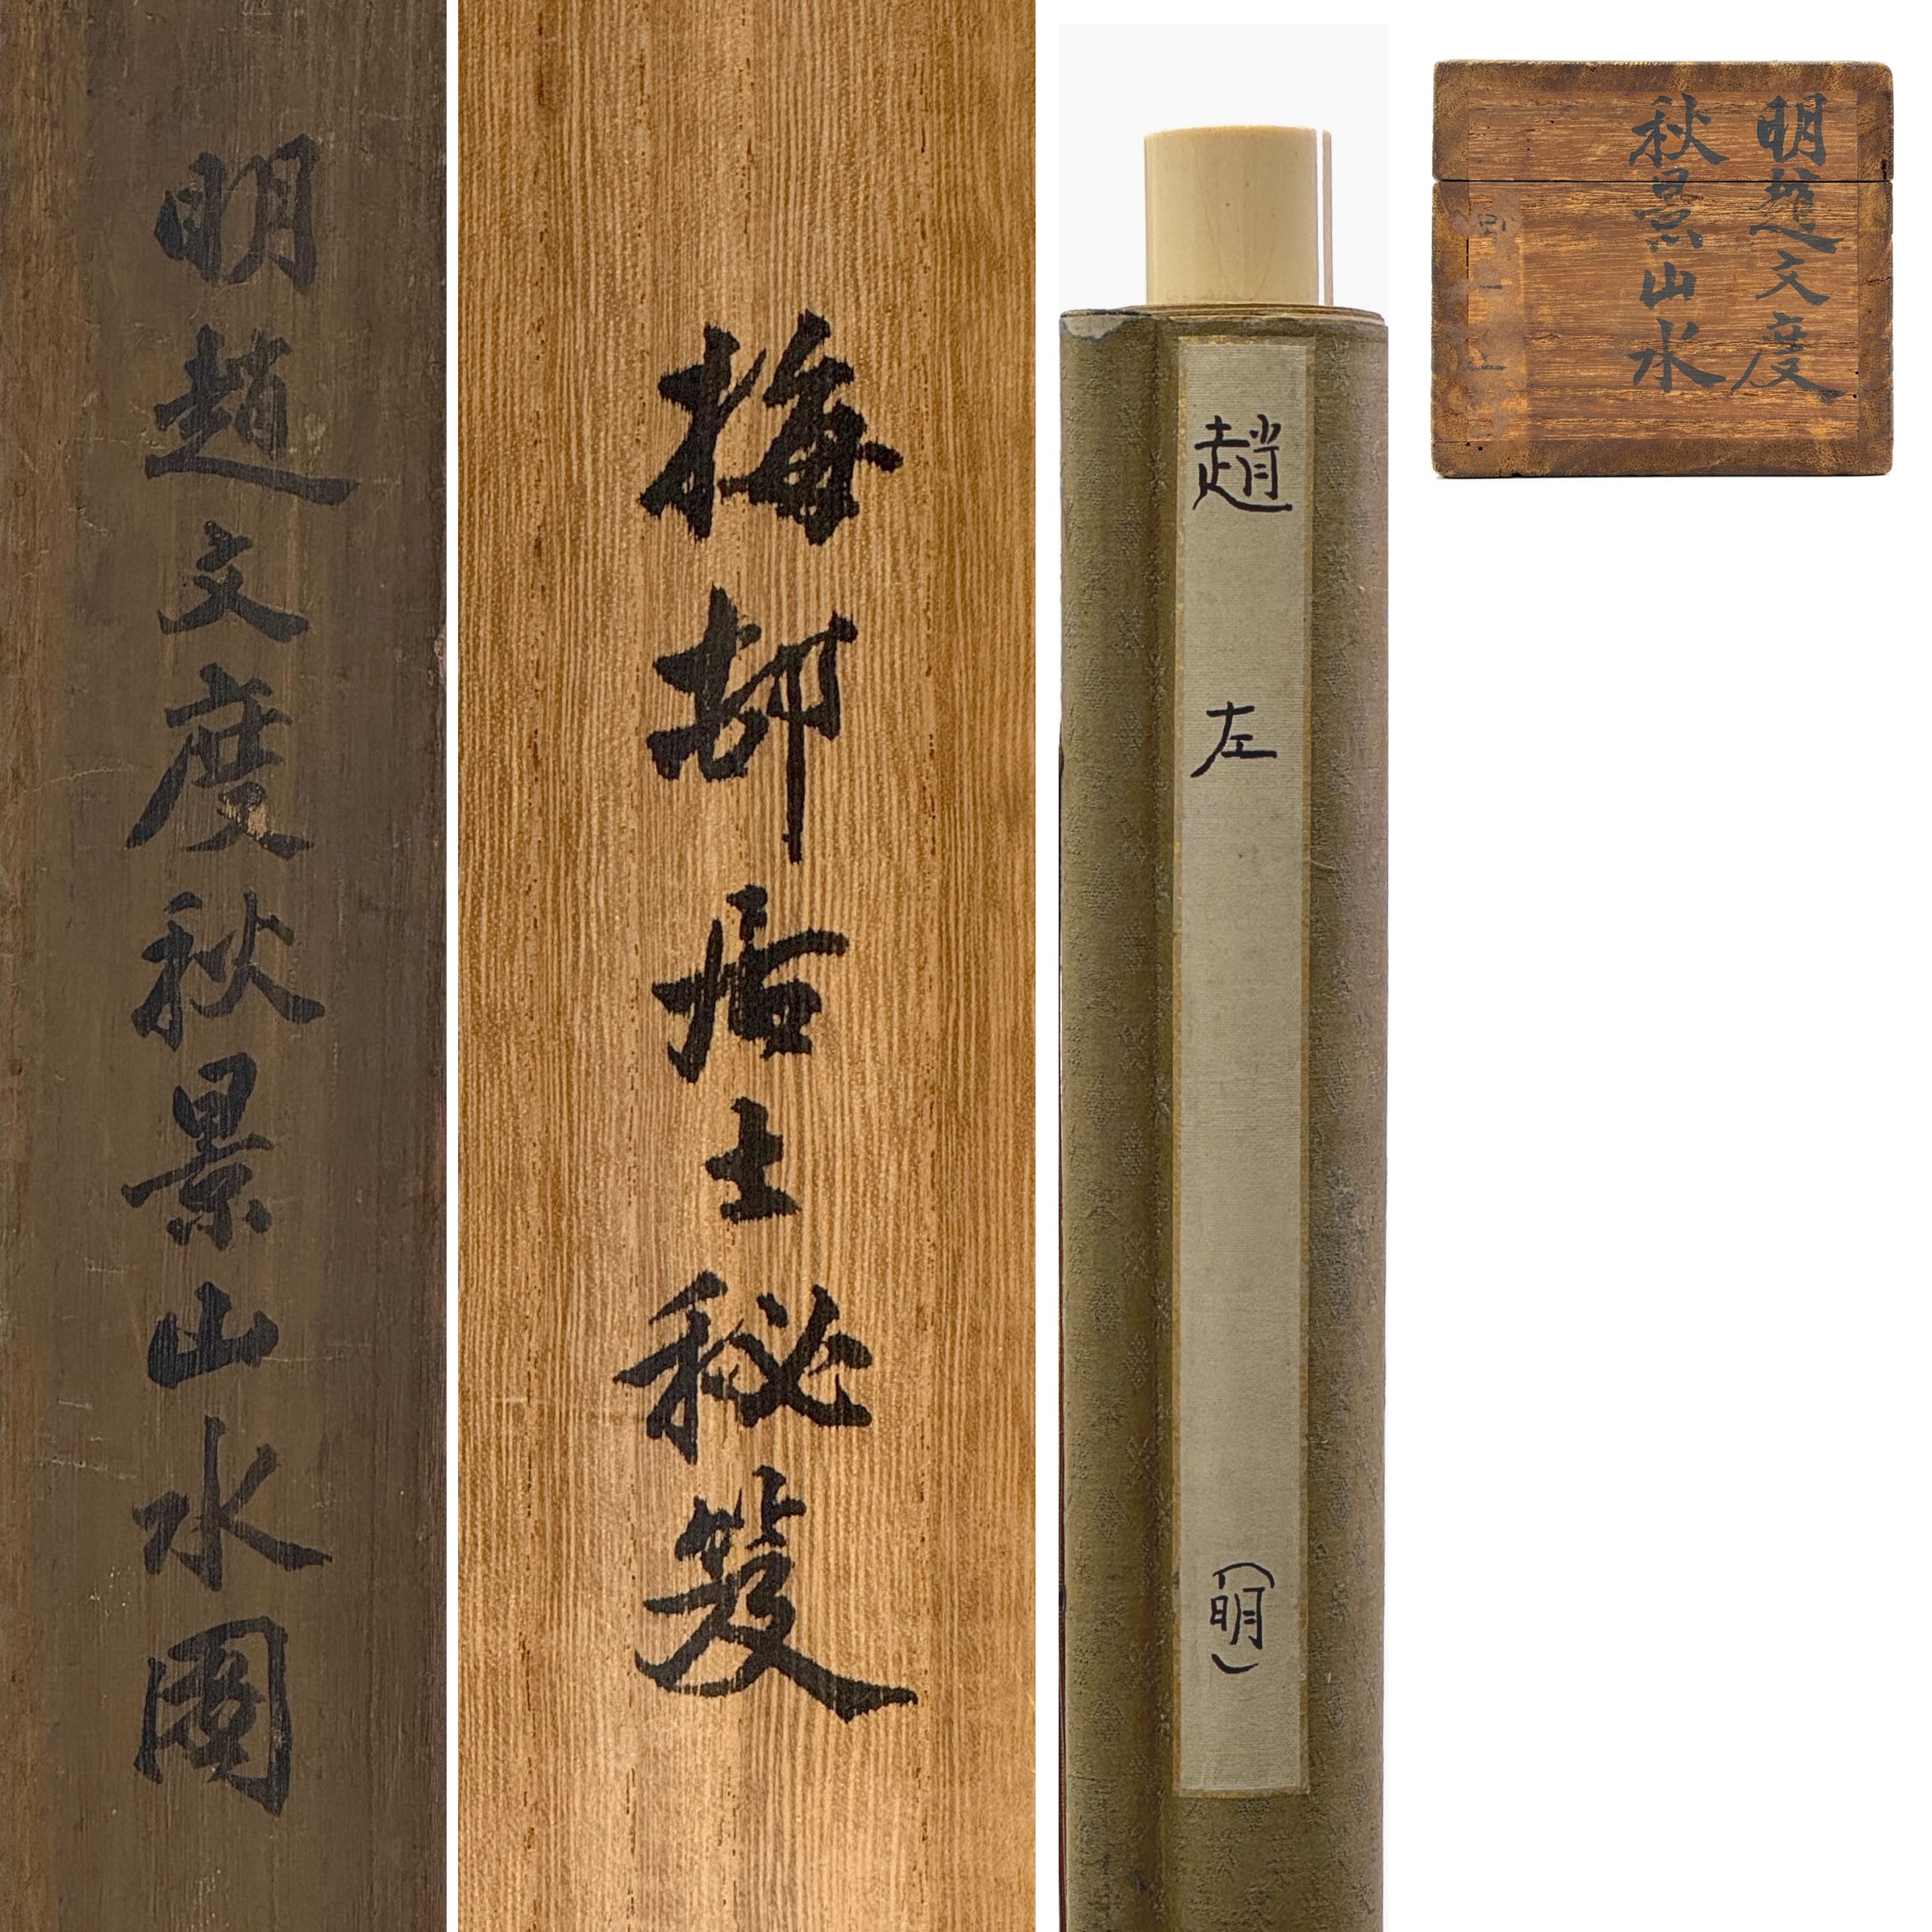 明趙文度秋景山水圖
梅邨居士秘笈
趙左
(明)
明趙文度
秋景山水